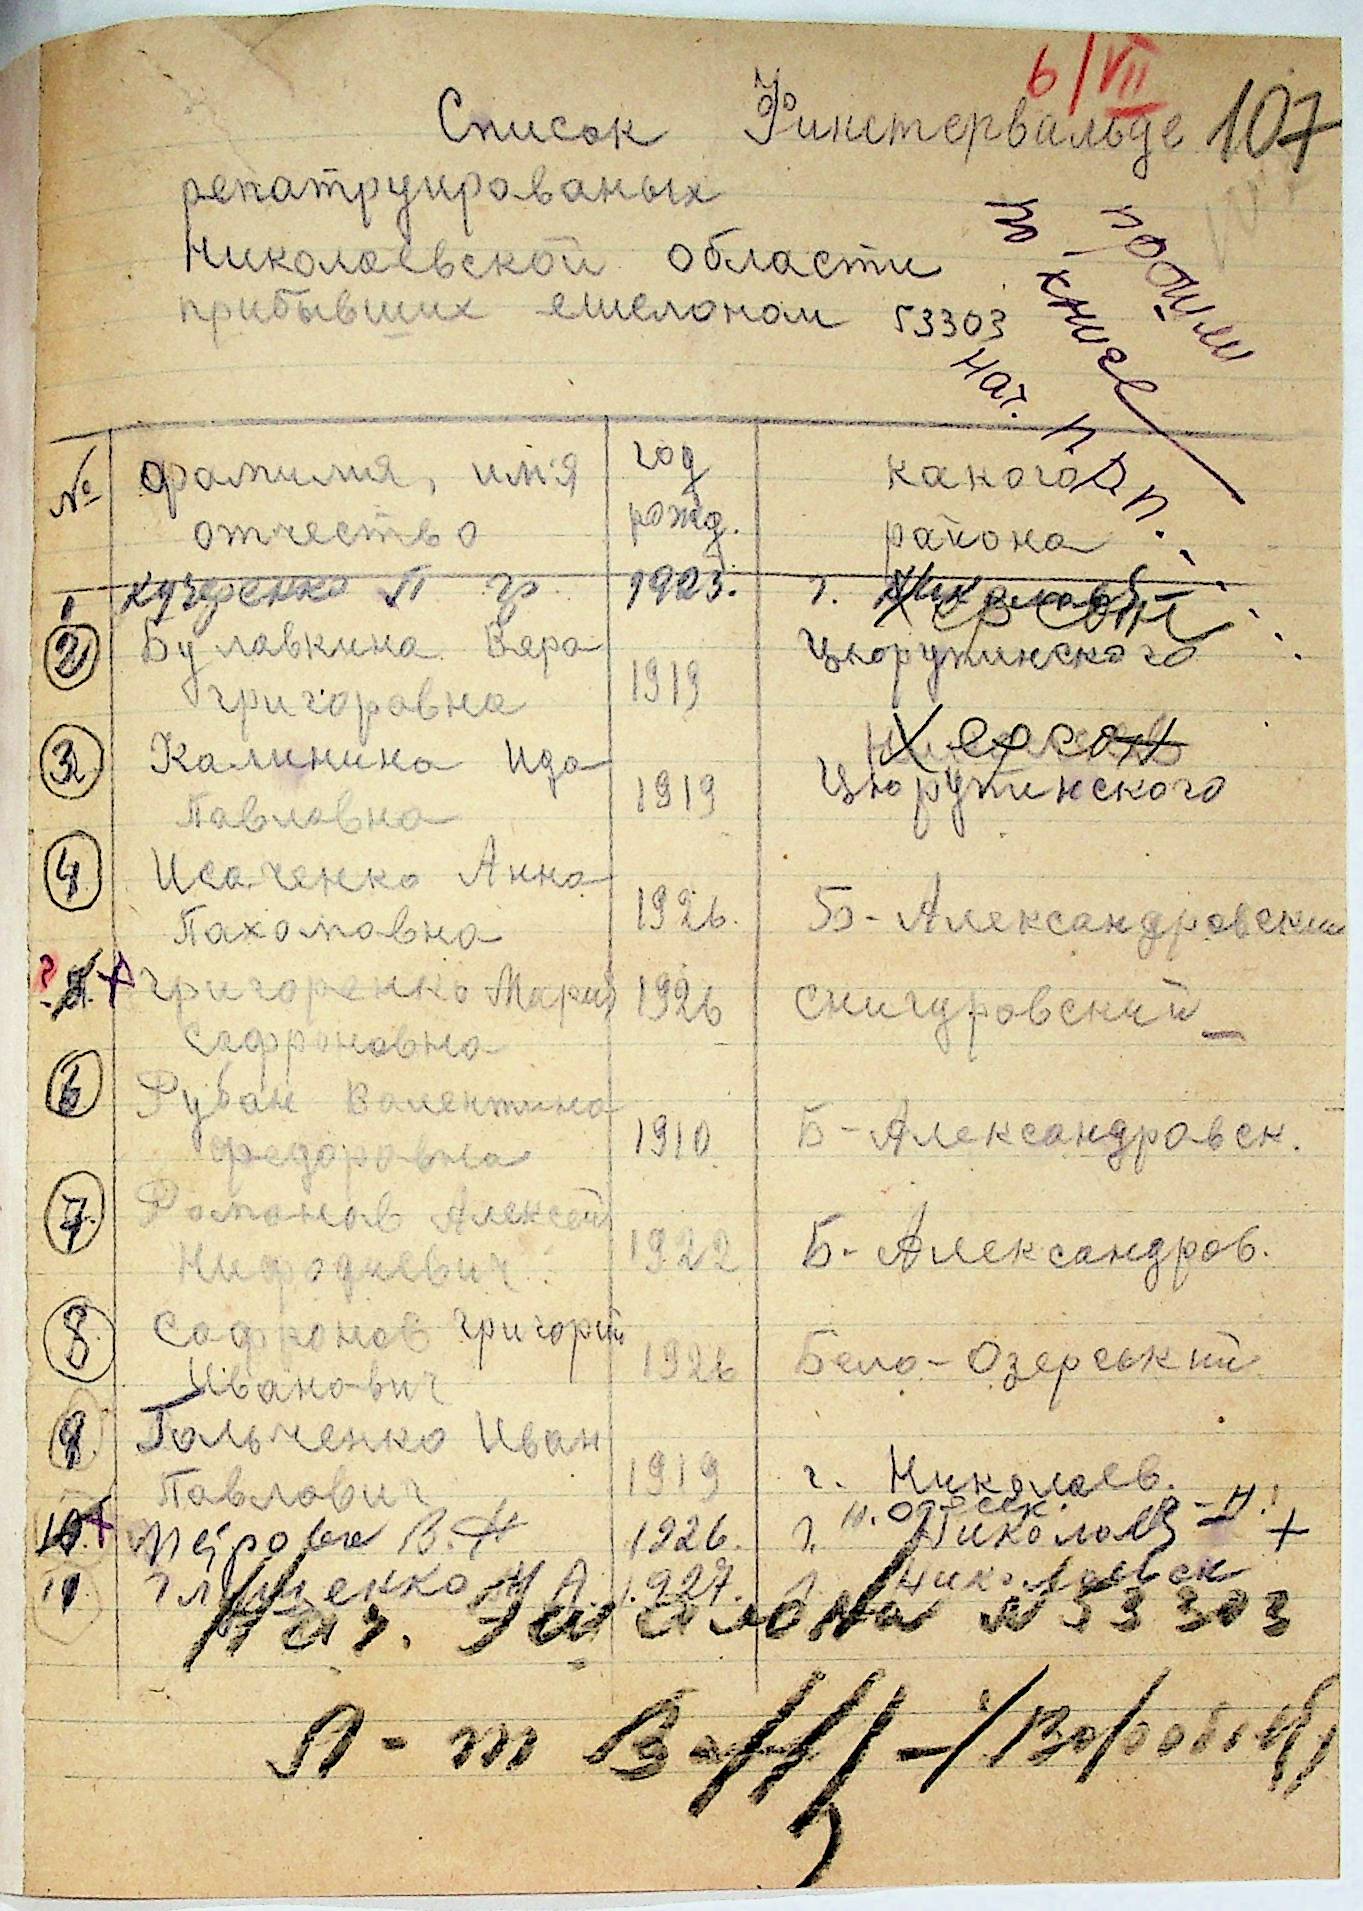 6/VII
107
Список Финстервальде
репатруированых
Николаевской области
прибывших ешелоном 53303
прошли
по книге
нач. п.п.
№ фамилия, им'я год какого
отчество рожд. района
1 Кучеренко П гр 1923. г. Николаев
Херсон
2 Булавкина Вера Цюрупинского
Григоровна 1919
Николаев Херсон
3 Калинина Ида Цюрупинского
Павловна 1919
4 Исаченко Анна
Пахомовна 1926. Б-Александровский
? 5. + Григоренко Мария 1926 Снигуровский
Софроновна
6 Рубан Валентина
Федоровна 1910 Б-Александровск.
7. Романов Алексей
Нифодиевич 1922 Б-Александров.
8 Софронов Григорий
Иванович 1926 Бело-Озерський
9. Гальченко Иван
Павлович 1919 г. Николаев.
н. одесск.
10. + В. 1926. г. Николаев +
11 Глущенко Н А. 1927. г. Николаевск
Нач. Эшелона № 53303
Л-т /Воробьев/